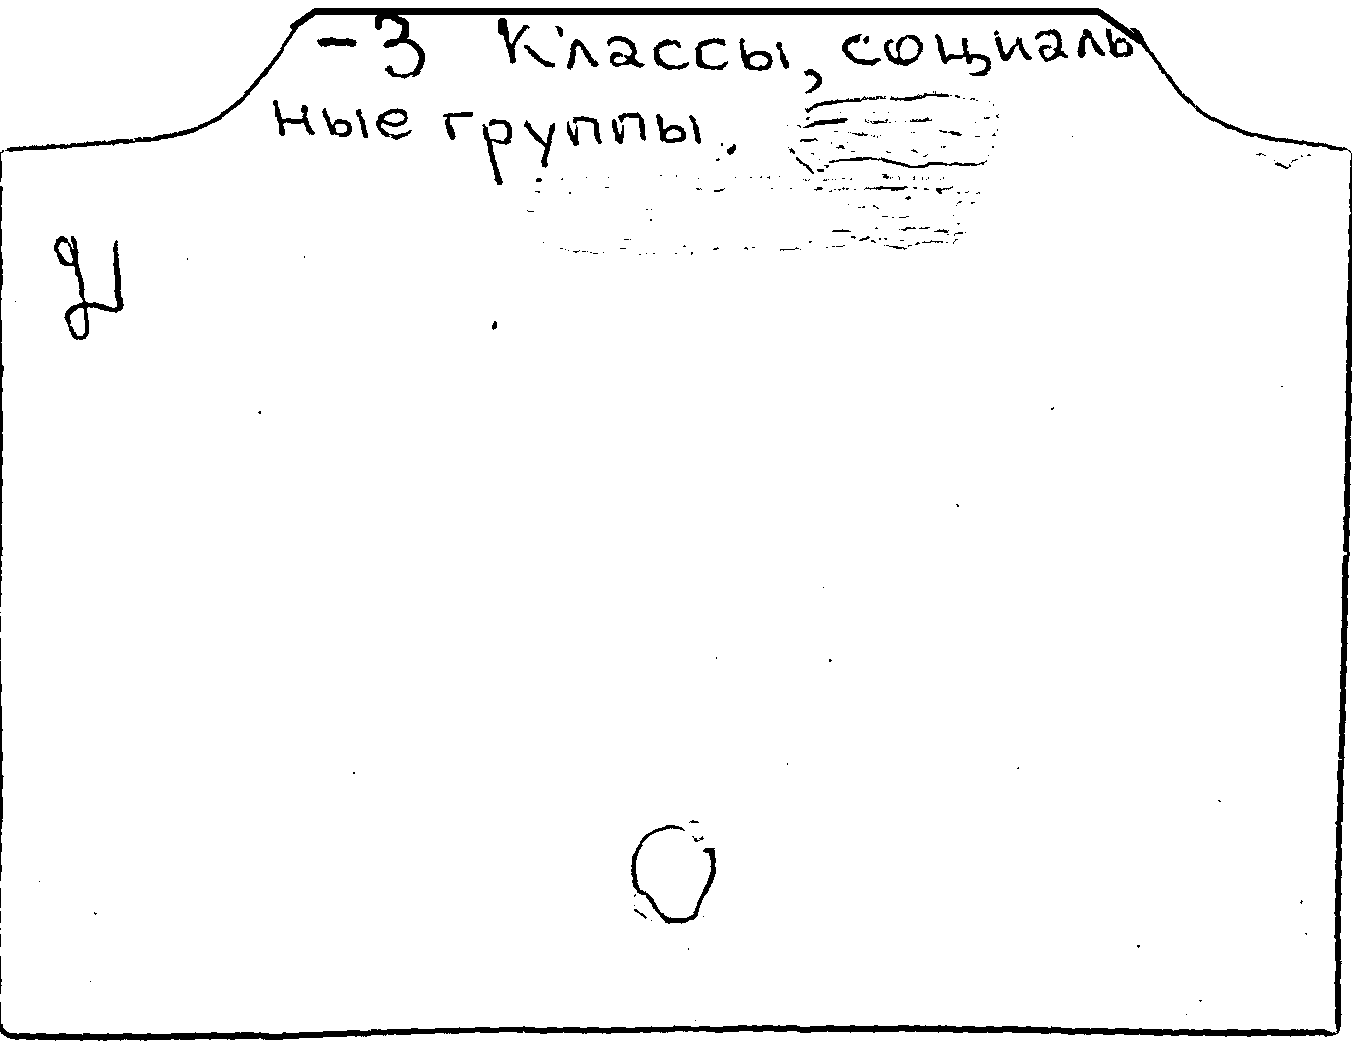 -3 Классы, социаль
ные группы.